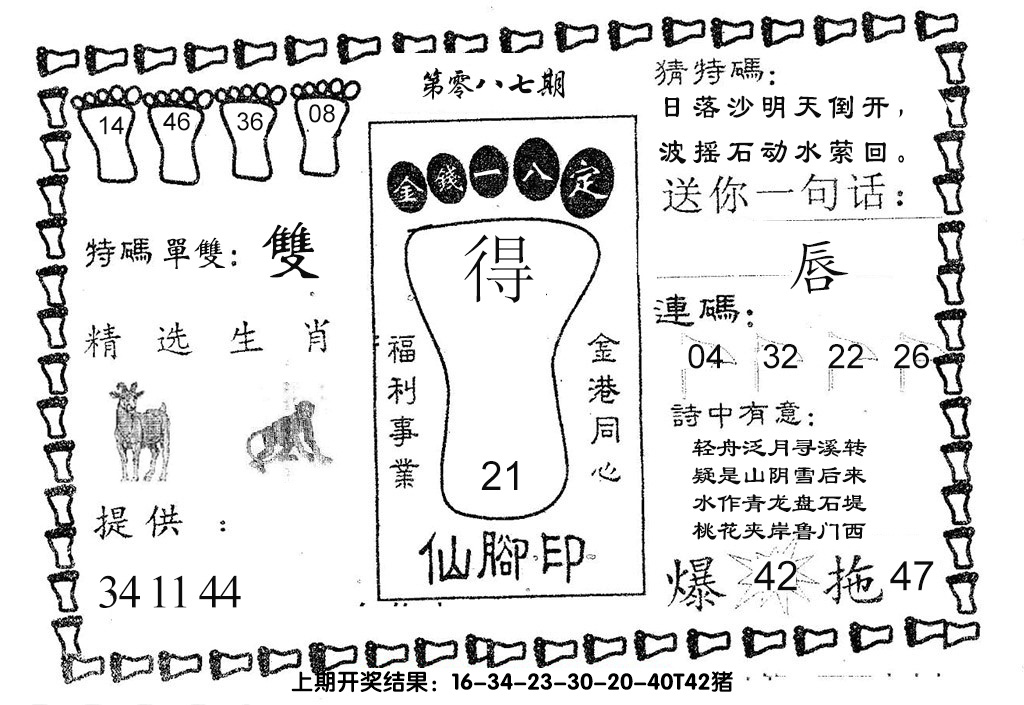 第零八七期
14 46 36 08
特碼單雙：雙
精选生肖
提供：
34 11 44
金錢一八定
得
21
福利事業
金港同心
仙腳印
猜特碼：
日落沙明天倒开，
波摇石动水萦回。
送你一句话：
唇
連碼：
04 32 22 26
詩中有意：
轻舟泛月寻溪转
疑是山阴雪后来
水作青龙盘石堤
桃花夹岸鲁门西
爆 42 拖 47
上期开奖结果：16-34-23-30-20-40T42猪